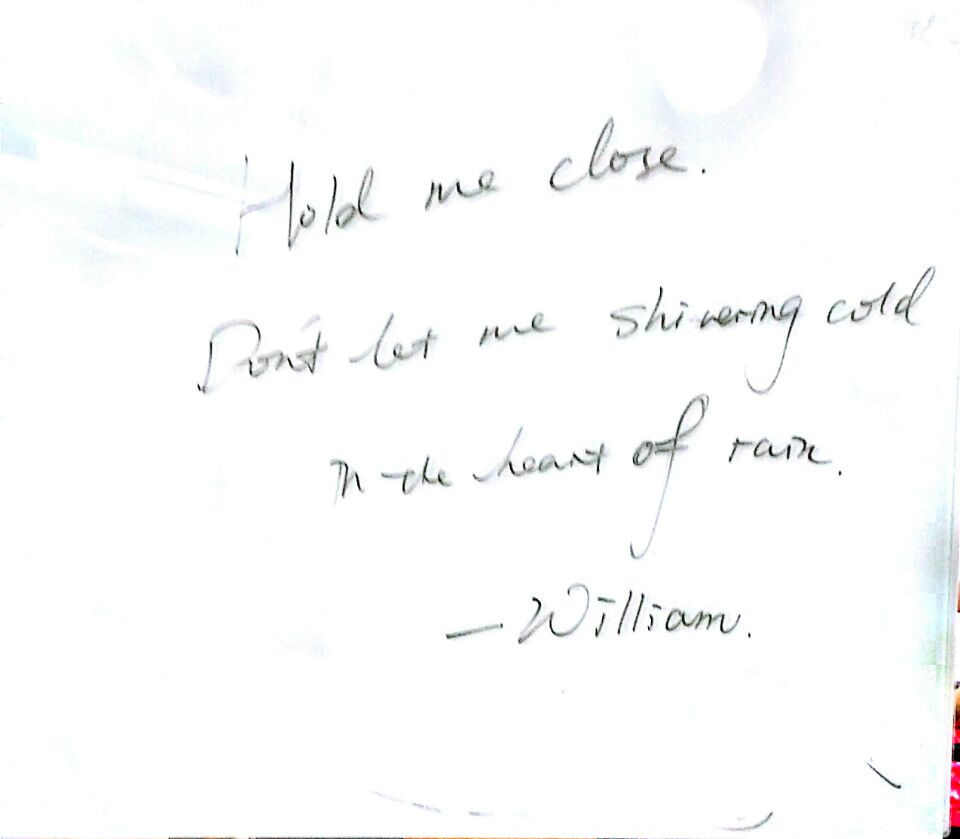 Hold me close.
Don't let me shivering cold
In the heart of rain.
— William.